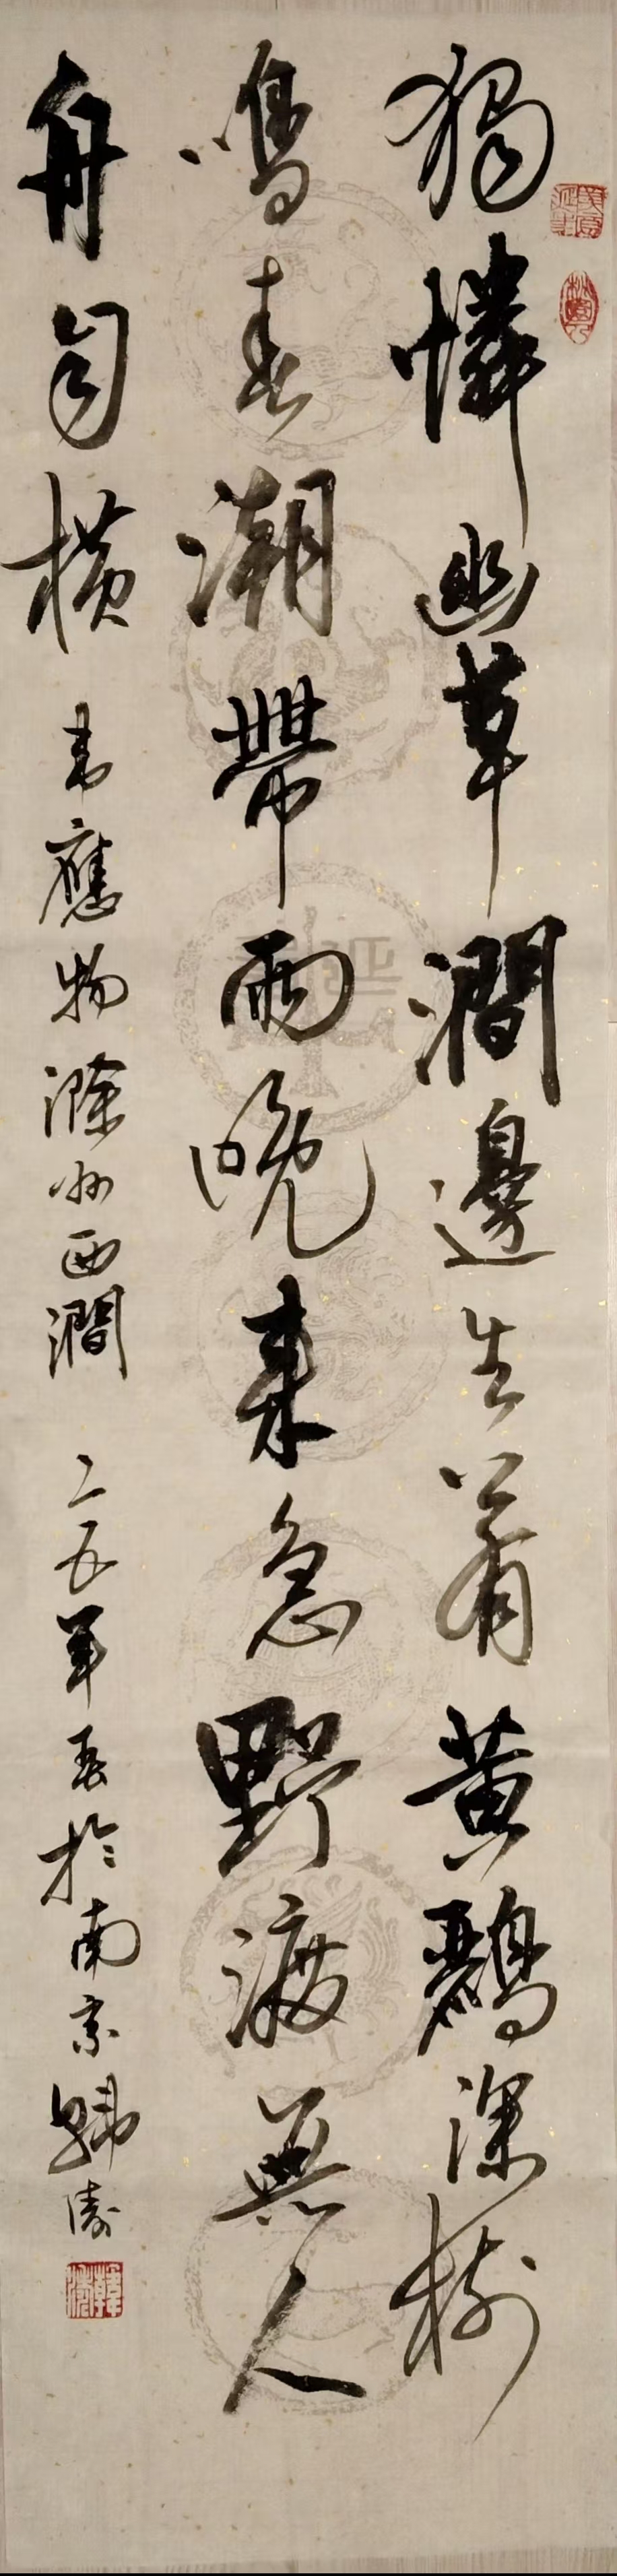 獨憐幽草澗邊生上有黃鸝深樹
鳴春潮帶雨晚來急野渡無人
舟自橫 韋應物滁州西澗 二五年於南京韓濤